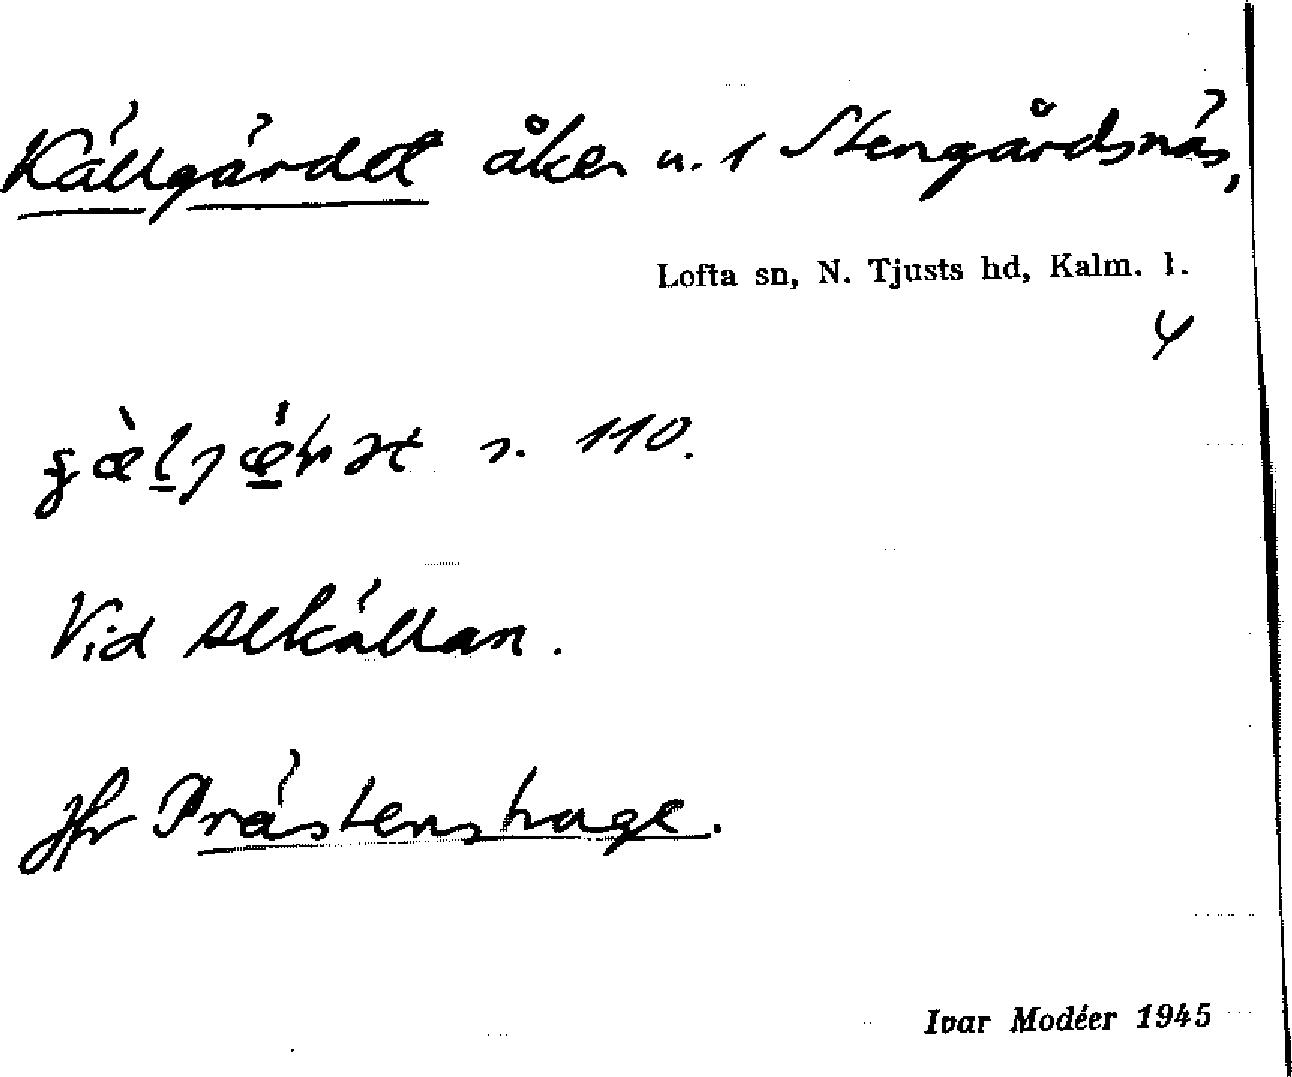 Källgärdet åker u. 1 Stengårdsnäs,
Lofta sn, N. Tjusts hd, Kalm. l.
4
s. 110.
Vid Alkällan.
Jfr Prästenshage.
Ivar Modéer 1945